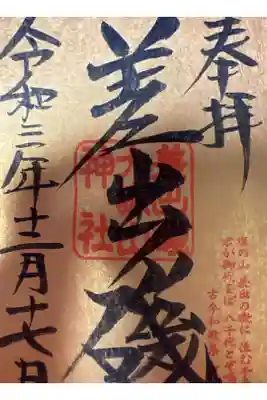 奉拝
差出磯
神社
令和三年十二月十七日
塩の山 差出の磯に 住む千
君が御代をば 八千代とぞ鳴
古今和歌集